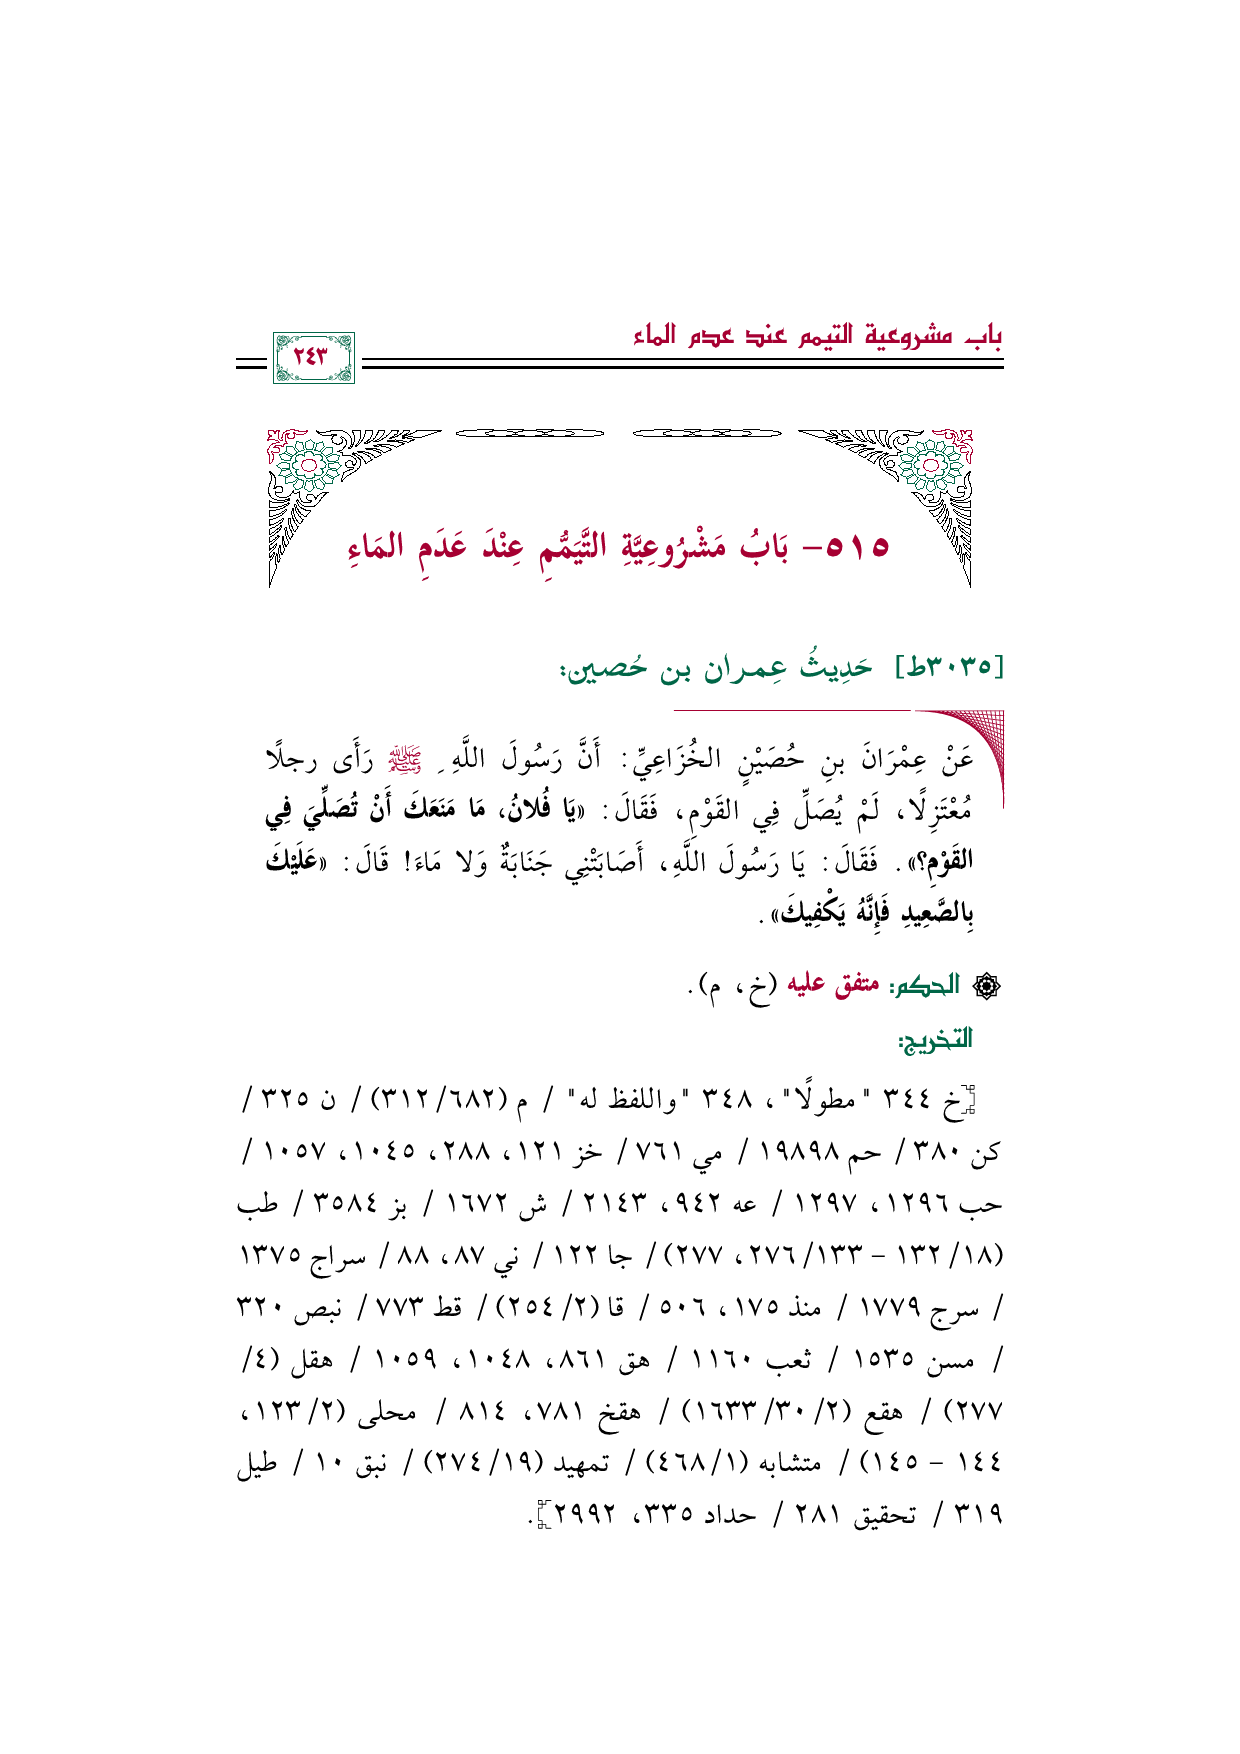 باب مشروعية التيمم عند عدم الماء
٢٤٣
٥١٥- بَابُ مَشْرُوعِيَّةِ التَّيَمُّمِ عِنْدَ عَدَمِ المَاءِ
[٣٠٣٥ط] حَدِيثُ عِمران بن حُصين:
عَنْ عِمْرَانَ بنِ حُصَيْنٍ الخُزَاعِيِّ: أَنَّ رَسُولَ اللَّهِ ﷺ رَأَى رجلًا
مُعْتَزِلًا، لَمْ يُصَلِّ فِي القَوْمِ، فَقَالَ: «يَا فُلانُ، مَا مَنَعَكَ أَنْ تُصَلِّيَ فِي
القَوْمِ؟». فَقَالَ: يَا رَسُولَ اللَّهِ، أَصَابَتْنِي جَنَابَةٌ وَلا مَاءَ! قَالَ: «عَلَيْكَ
بِالصَّعِيدِ فَإِنَّهُ يَكْفِيكَ».
الحكم: متفق عليه (خ، م).
التخريج:
[خ ٣٤٤ "مطولًا"، ٣٤٨ "واللفظ له" / م (٦٨٢/ ٣١٢) / ن ٣٢٥ /
كن ٣٨٠ / حم ١٩٨٩٨ / مي ٧٦١ / خز ١٢١، ٢٨٨، ١٠٤٥، ١٠٥٧ /
حب ١٢٩٦، ١٢٩٧ / عه ٩٤٢، ٢١٤٣ / ش ١٦٧٢ / بز ٣٥٨٤ / طب
(١٨/ ١٣٢ - ١٣٣/ ٢٧٦، ٢٧٧) / جا ١٢٢ / ني ٨٧، ٨٨ / سراج ١٣٧٥
/ سرج ١٧٧٩ / منذ ١٧٥، ٥٠٦ / قا (٢/ ٢٥٤) / قط ٧٧٣ / نبص ٣٢٠
/ مسن ١٥٣٥ / ثعب ١١٦٠ / هق ٨٦١، ١٠٤٨، ١٠٥٩ / هقل (٤/
٢٧٧) / هقع (٢/ ٣٠/ ١٦٣٣) / هقخ ٧٨١، ٨١٤ / محلى (٢/ ١٢٣،
١٤٤ - ١٤٥) / متشابه (١/ ٤٦٨) / تمهيد (١٩/ ٢٧٤) / نبق ١٠ / طيل
٣١٩ / تحقيق ٢٨١ / حداد ٣٣٥، ٢٩٩٢].